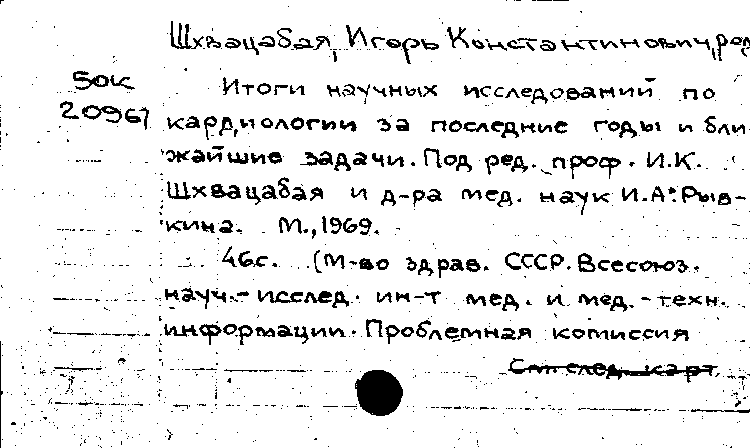 Шхвацабая, Игорь Константинович, ред
50К
20961
Итоги научных исследований по
кардиологии за последние годы и бли
жайшие задачи. Под ред. проф. И.К.
Шхвацабая и д-ра мед. наук И.А. Рыв-
кина. М., 1969.
46с. (М-во здрав. СССР. Всесоюз.
науч.-исслед. ин-т мед. и мед.-техн.
информации. Проблемная комиссия
См. след. карт.